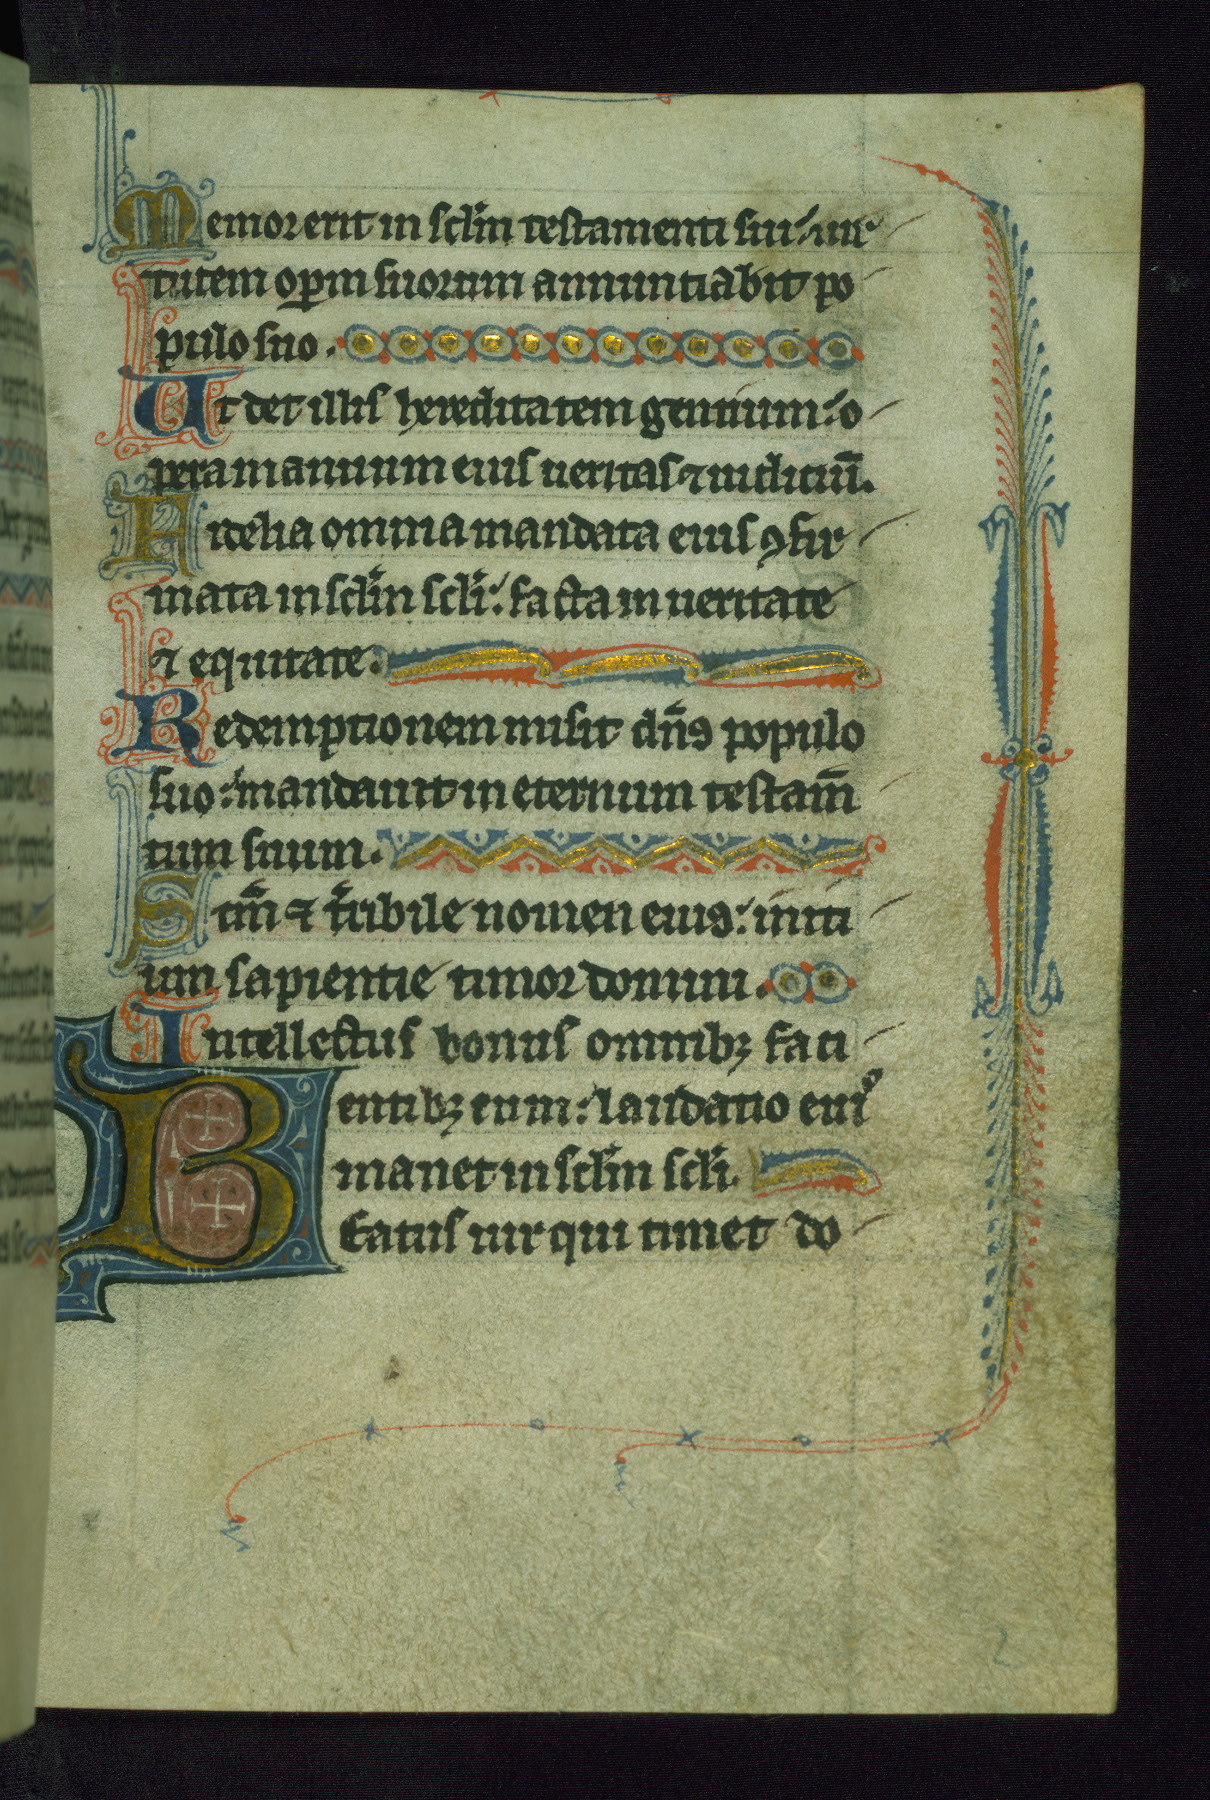 Memor erit in sclm̄ testamenti sui: uir
tutem oꝑm suorum annuntiabit po
pulo suo.
Ut det illis hereditatem gentium: o
pera manuum eius ueritas ⁊ iudiciū.
Fidelia omnia mandata eius ꝯfir
mata in sclm̄ scli̅: facta in ueritate
⁊ equitate.
Redemptionem misit dn̄s populo
suo: mandauit in eternum testam̄
tum suum.
Scm̄ ⁊ tribile nomen eius: initi
um sapientie timor domini.
Intellectus bonus omnibꝫ faci
entibꝫ eum: laudatio eiꝰ
manet in sclm̄ scli̅.
Beatus uir qui timet do